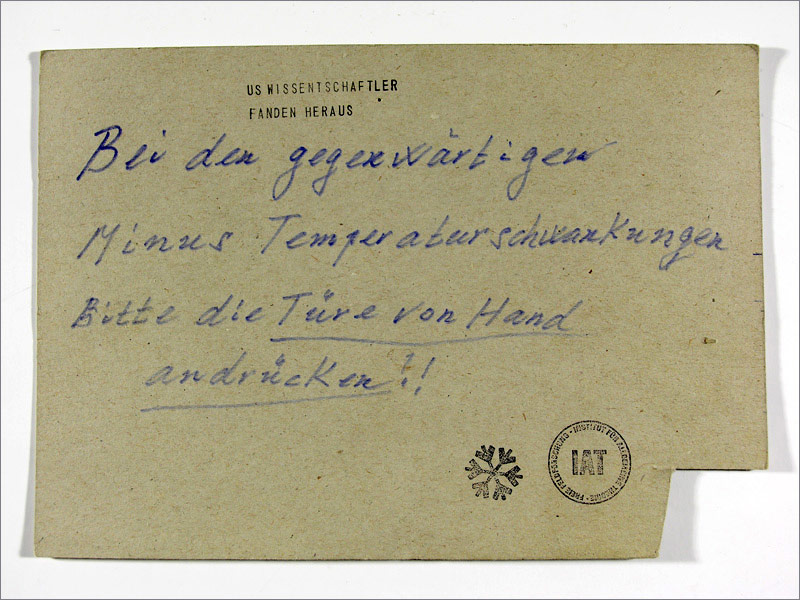 US WISSENTSCHAFTLER
FANDEN HERAUS
Bei den gegenwärtigen
Minus Temperaturschwankungen
Bitte die Türe von Hand
andrücken!!
IAT
INSTITUT FÜR ALLGEMEINE THEORIE • FREIE FELDFORSCHUNG •